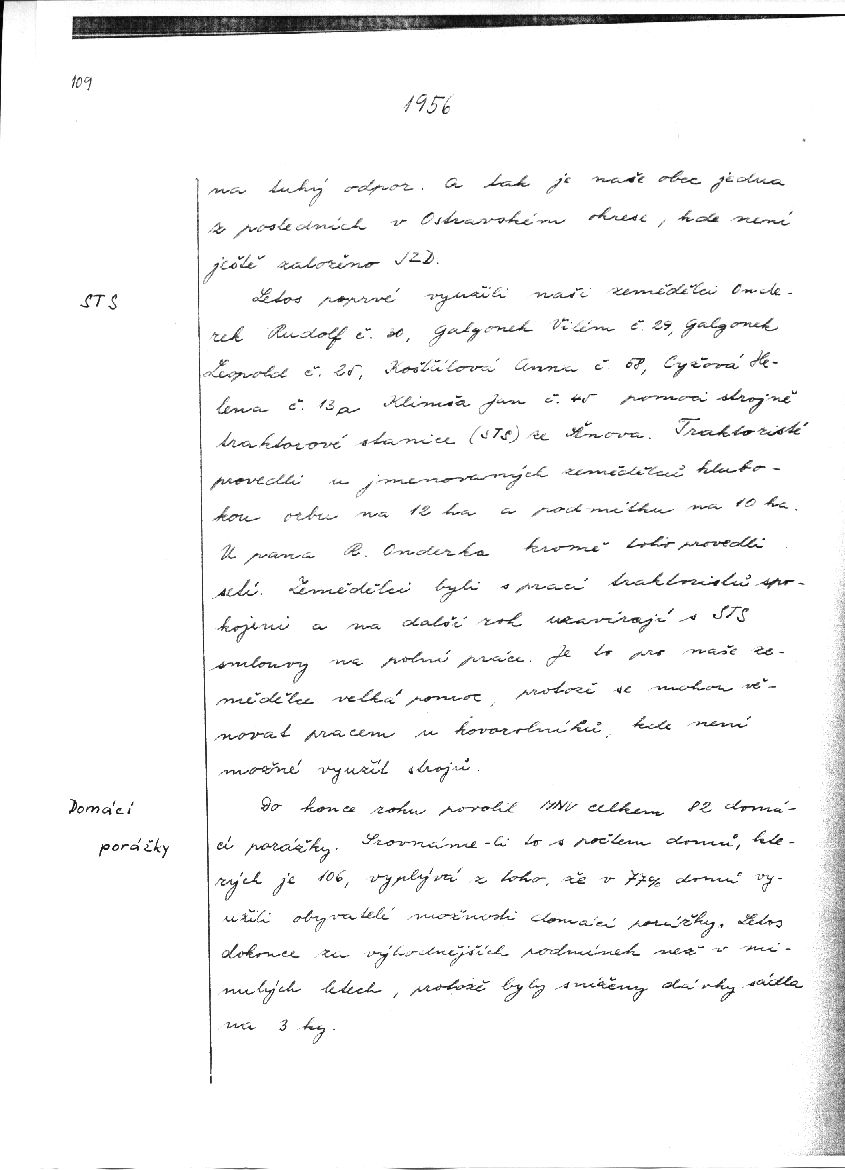 109
1956
na tuhý odpor. A tak je naše obec jedna
z posledních v Ostravském okrese, kde není
ještě založeno JZD.
STS
Letos poprvé využili naši zemědělci Onde-
rek Rudolf č. 30, Galgonek Vilém č. 29, Galgonek
Leopold č. 25, Košťálová Anna č 58, Cyžová He-
lena č. 13 a Klimša Jan č. 45 pomoci strojně
traktorové stanice (STS) ze Šenova. Traktoristé
provedli u jmenovaných zemědělců hlubo-
kou orbu na 12 ha a podmítku na 10 ha.
U pana R. Onderka kromě toho provedli
setí. Zemědělci byli s prací traktoristů spo-
kojeni a na další rok uzavírají s STS
smlouvy na polní práce. Je to pro naše ze-
mědělce velká pomoc, protože se mohou vě-
novat pracem u kovozolníků, kde není
možné využít strojů.
Domácí
porážky
Do konce roku povolil MNV celkem 82 domá-
cí porážky. Srovnáme-li to s počtem domů, kte-
rých je 106, vyplývá z toho, že v 77% domů vy-
užili obyvatelé možnosti domácí porážky. Letos
dokonce za výhodnějších podmínek než v mi-
nulých letech, protože byly sníženy dávky sádla
na 3 kg.